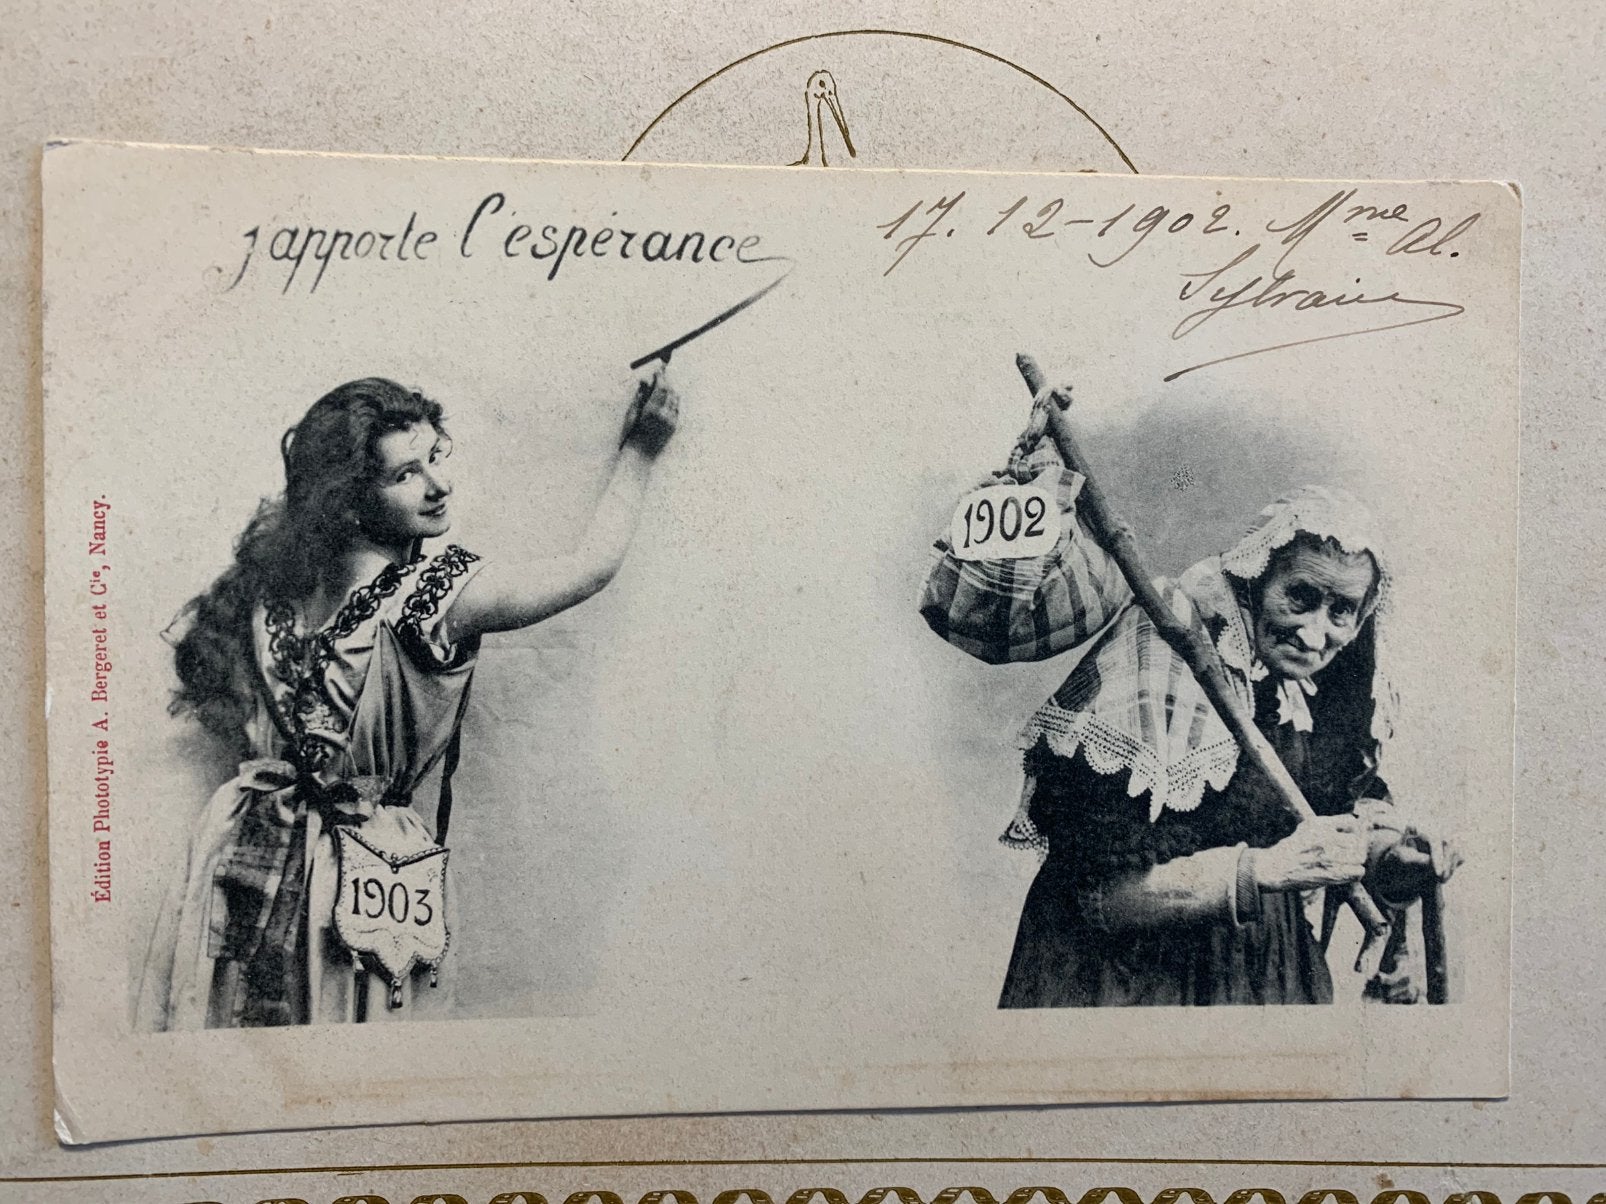 j'apporte l'espérance
17. 12-1902. Mme Al.
Sylvain
1902
1903
Édition Phototypie A. Bergeret et Cie, Nancy.